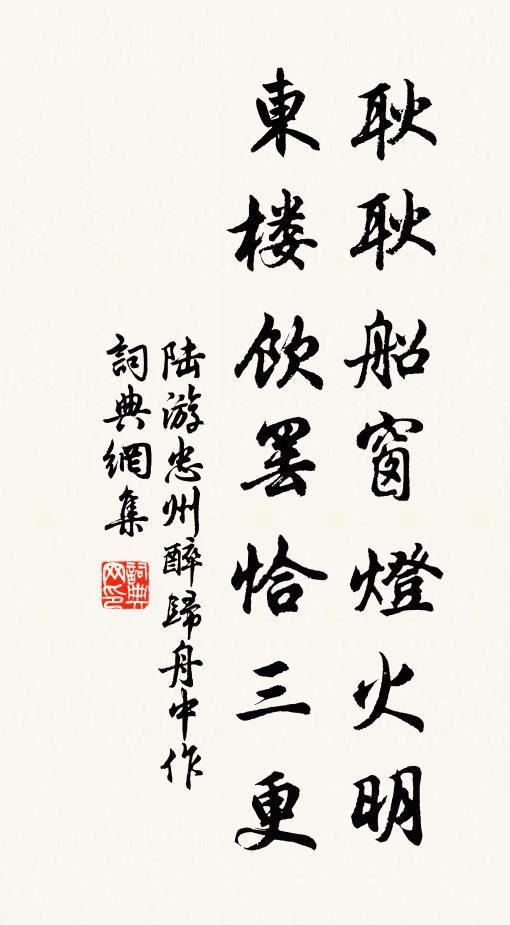 耿耿船窗燈火明
東楼飲罷恰三更
陆游忠州醉歸舟中作
詞典網集
詞典网印